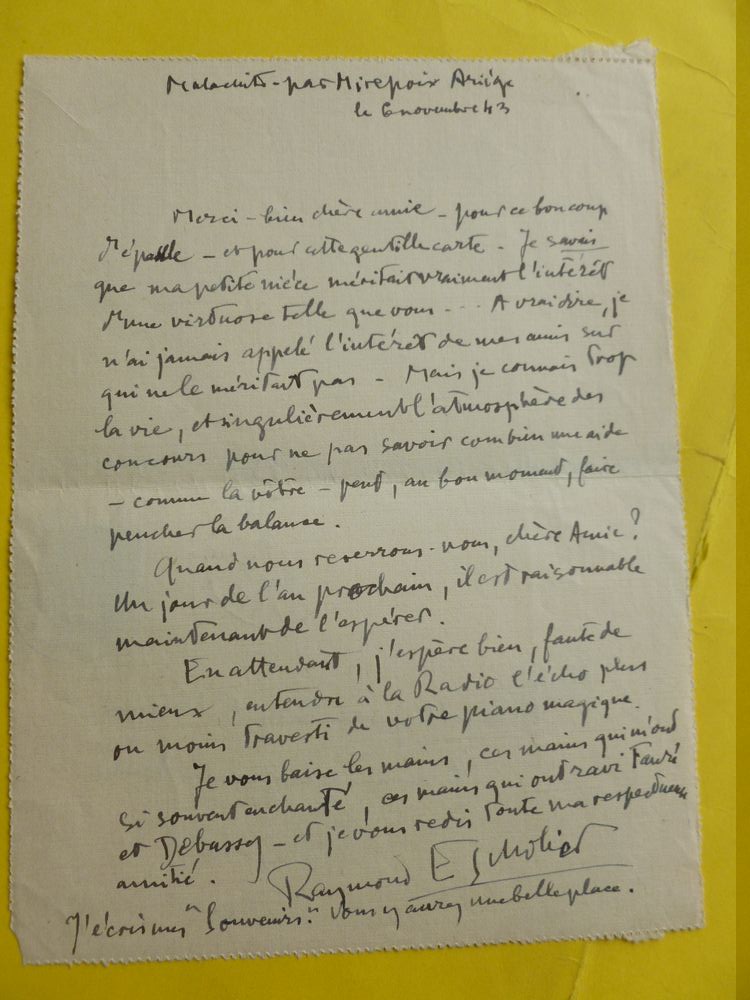 Malaquit - par Mirepoix Ariège
le 6 novembre 43
Merci - bien chère amie - pour ce bon coup
d'épaule - et pour cette gentille carte - Je savais
que ma petite nièce méritait vraiment l'intérêt
d'une virtuose telle que vous - .. A vrai dire, je
n'ai jamais appelé l'intérêt de mes amis sur
qui ne le méritait pas - Mais je connais trop
la vie, et singulièrement l'atmosphère des
concours pour ne pas savoir combien une aide
- comme la vôtre - peut, au bon moment, faire
pencher la balance.
Quand nous reverrons-nous, chère Amie?
Un jour de l'an prochain, il est raisonnable
maintenant de l'espérer.
En attendant, j'espère bien, faute de
mieux, entendre à la Radio l'écho plus
ou moins travesti de votre piano magique.
Je vous baise les mains, ces mains qui m'ont
si souvent enchanté, ces mains qui ont ravi Fauré
et Debussy - et je vous redis toute ma respectueuse
amitié.
Raymond Escholier
J'écris mes "Souvenirs". Vous y aurez une belle place.